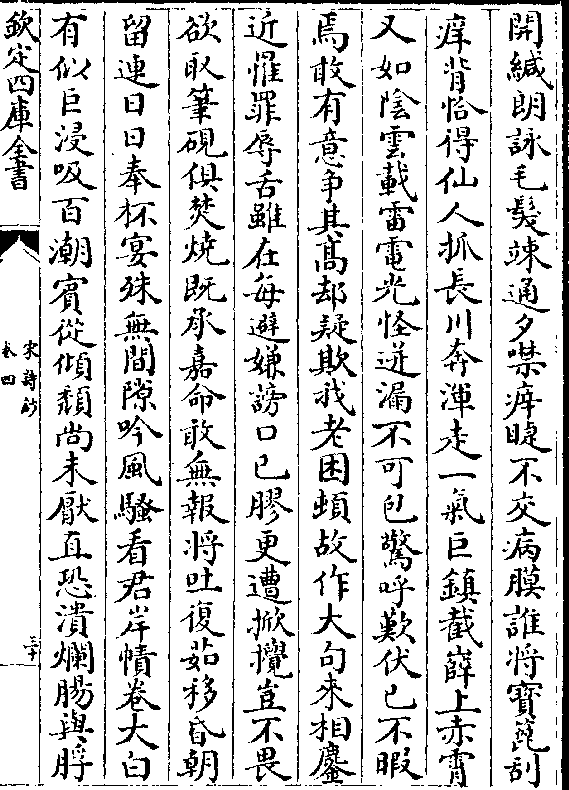 開緘朗詠毛髮竦通夕噤㾕睫不交病膜誰將寶篦刮
痒背恰得仙人抓長川奔渾走一氣巨鎮截嶭上赤霄
又如陰雲載雷電光怪迸漏不可包驚呼歎伏已不暇
焉敢有意争其髙却疑欺我老困頓故作大句來相鏖
近罹罪辱舌雖在每避嫌謗口已膠更遭掀攪豈不畏
欲取筆硯俱焚燒既承嘉命敢無報將吐復茹移昏朝
留連日日奉杯宴殊無間隙吟風騷看君岸幘卷大白
有似巨浸吸百潮賓從傾頽尚未厭直恐潰爛腸與脬
欽定四庫全書
宋詩鈔
卷四
三十